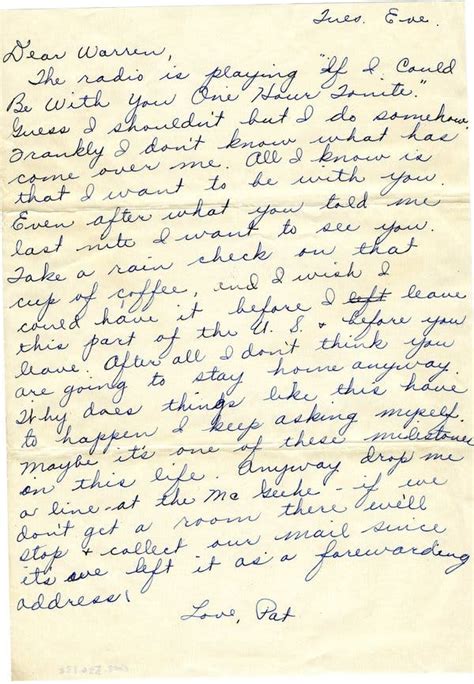 Tues. Eve.
Dear Warren,
The radio is playing "If I Could
Be With You One Hour Tonite."
Guess I shouldn't but I do somehow.
Frankly I don't know what has
come over me. All I know is
that I want to be with you.
Even after what you told me
last nite I want to see you.
Take a rain check on that
cup of coffee, and I wish I
could have it before I left leave
this part of the U.S. & before you
leave. After all I don't think you
are going to stay home anyway.
Why does things like this have
to happen I keep asking myself.
Maybe it's one of these milestones
in this life. Anyway drop me
a line at the Mc Gehe - if we
don't get a room there we'll
stop & collect our mail since
its left it as a forewarding
address!
Love, Pat